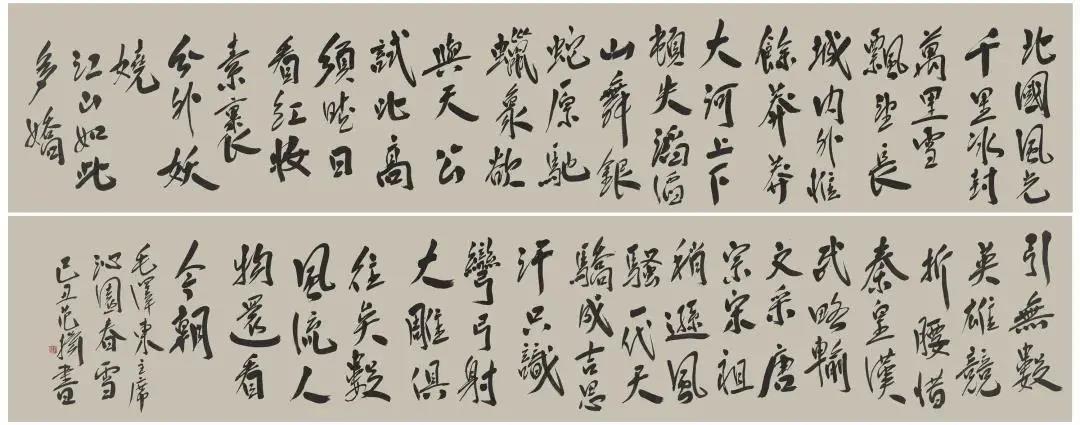 北國風光
千里冰封
萬里雪
飄望長
城內外惟
餘莽莽
大河上下
頓失滔滔
山舞銀
蛇原馳
蠟象欲
與天公
試比高
須晴日
看紅妝
素裹
分外妖
嬈
江山如此
多嬌
引無數
英雄競
折腰惜
秦皇漢
武略輸
文采唐
宗宋祖
稍遜風
騷一代天
驕成吉思
汗只識
彎弓射
大雕俱
往矣數
風流人
物還看
今朝
毛澤東主席
沁園春雪
己丑范揚書